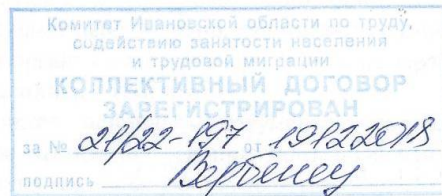 Комитет Ивановской области по труду,
содействию занятости населения
и трудовой миграции
КОЛЛЕКТИВНЫЙ ДОГОВОР
ЗАРЕГИСТРИРОВАН
за № 21/22-197 от 19122018
подпись